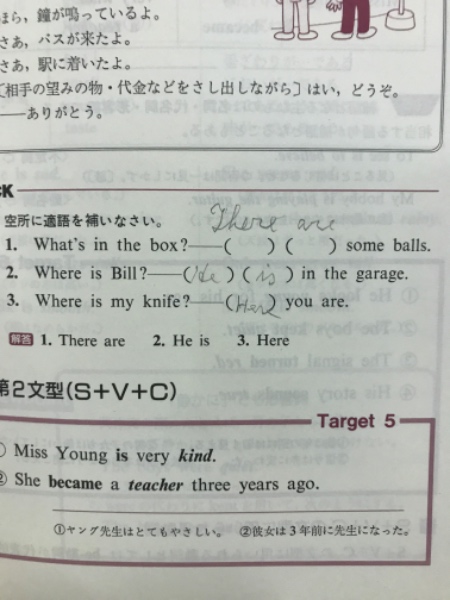 ほら，鐘が鳴っているよ。
さあ，バスが来たよ。
さあ，駅に着いたよ。
〔相手の望みの物・代金などをさし出しながら〕はい，どうぞ。
——ありがとう。
CK
空所に適語を補いなさい。
There are
1. What's in the box?——( ) ( ) some balls.
2. Where is Bill?——(He) (is) in the garage.
3. Where is my knife?——(Here) you are.
解答 1. There are 2. He is 3. Here
第2文型(S+V+C)
Target 5
① Miss Young is very kind.
② She became a teacher three years ago.
①ヤング先生はとてもやさしい。 ②彼女は3年前に先生になった。